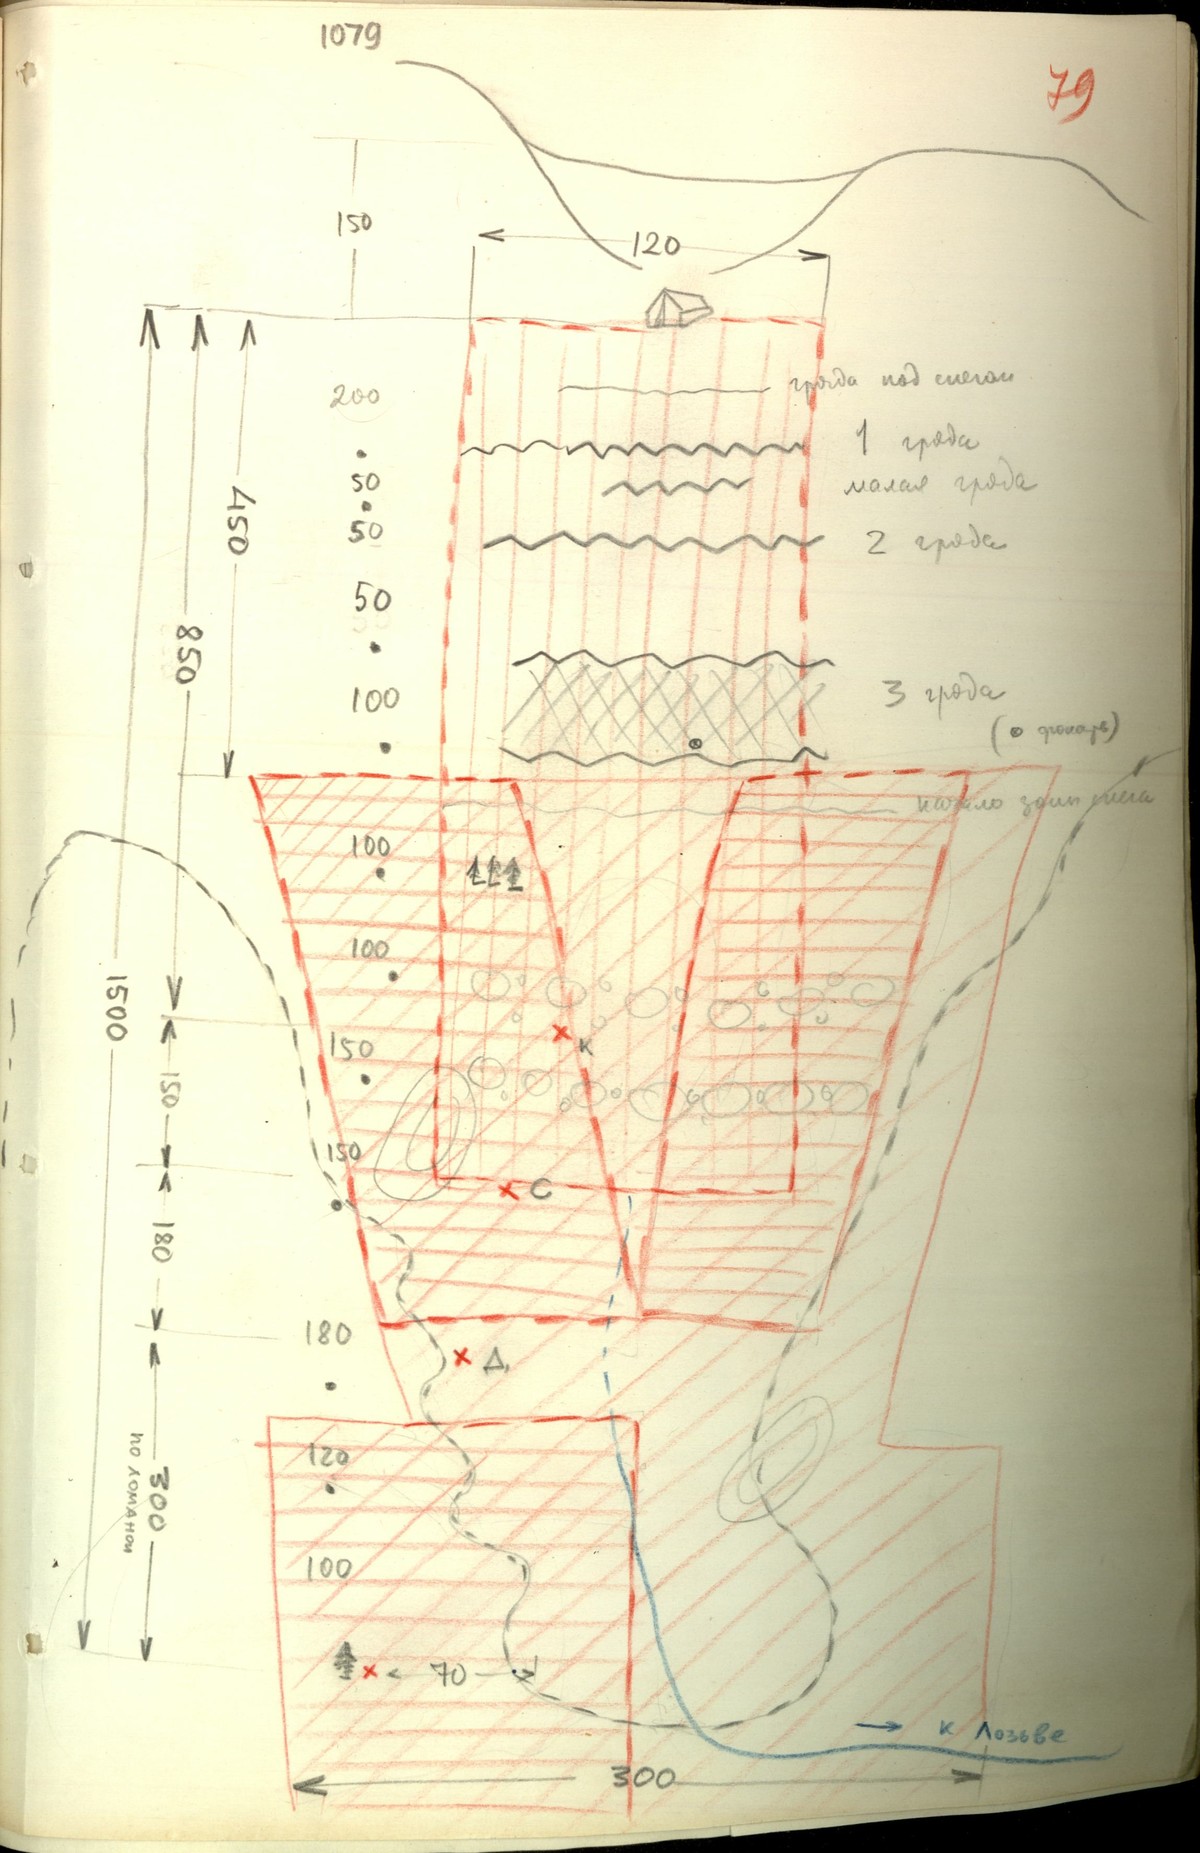 1079
79
150
120
200
гряда под снегом
1 гряда
50
малая гряда
50
2 гряда
450
50
850
100
3 гряда
(фонарь)
начало
100
100
1500
150
К
150
150
С
180
180
Д.
120
300
по
100
70
к Лозьве
300